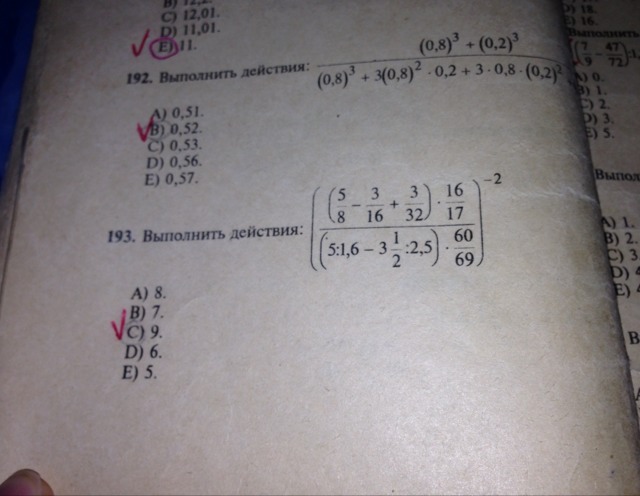 B) 12,2.
C) 12,01.
D) 11,01.
E) 11.
192. Выполнить действия: (0,8)³ + (0,2)³ / (0,8)³ + 3(0,8)² · 0,2 + 3 · 0,8 · (0,2)²
A) 0,51.
B) 0,52.
C) 0,53.
D) 0,56.
E) 0,57.
193. Выполнить действия: (((5/8 − 3/16 + 3/32) · 16/17) / ((5:1,6 − 3 1/2 :2,5) · 60/69))⁻²
A) 8.
B) 7.
C) 9.
D) 6.
E) 5.
D) 18.
E) 16.
Выполнить
((7/9 − 47/72):1,
A) 0.
B) 1.
C) 2.
D) 3.
E) 5.
Выпол
A) 1.
B) 2.
C) 3
D)
E)
В